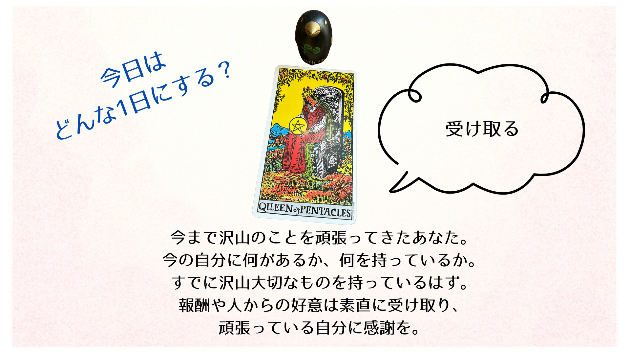 今日は
どんな1日にする？
受け取る
QUEEN of PENTACLES
今まで沢山のことを頑張ってきたあなた。
今の自分に何があるか、何を持っているか。
すでに沢山大切なものを持っているはず。
報酬や人からの好意は素直に受け取り、
頑張っている自分に感謝を。